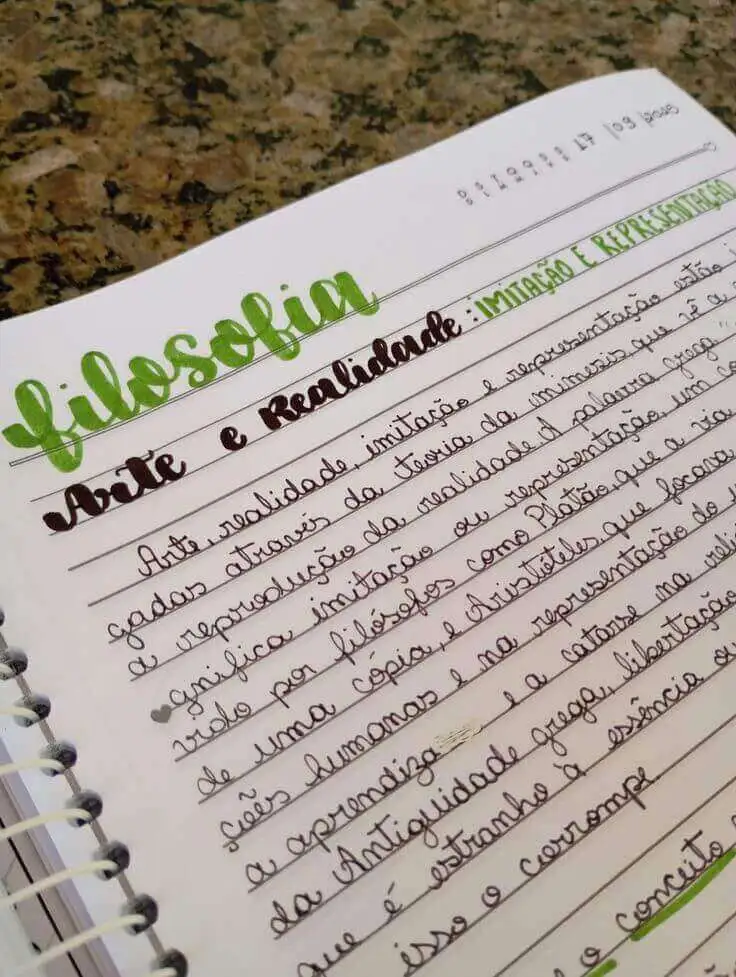 D I A 17 / 09 / 2025
filosofia
Arte e Realidade: IMITAÇÃO E REPRESENTAÇÃO
Arte, realidade, imitação e representação estão
gadas através da teoria da mimesis que vê a
a reprodução da realidade. A palavra grega "
gnifica imitação ou representação, um
vido por filósofos como Platão, que a via
de uma cópia, e Aristóteles, que focava
ções humanas e na representação do
a aprendiza e a catarse na
da Antiguidade grega, libertação
que é estranho à essência ou
isso o corrompe.
o conceito